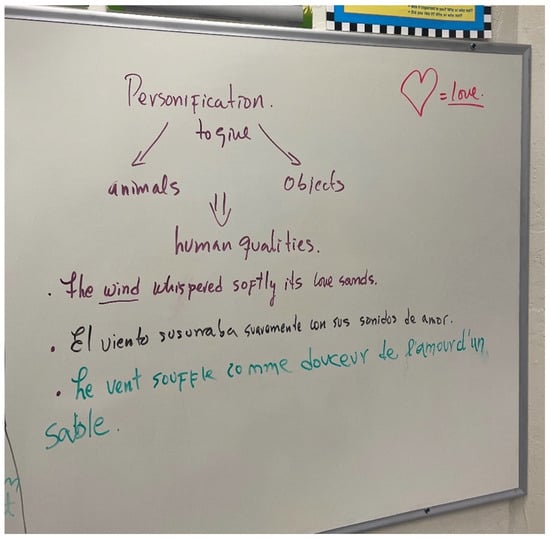 Personification.
♡ = love.
to give
animals objects
human qualities.
. The wind whispered softly its love sands.
. El viento susurraba suavemente con sus sonidos de amor.
. Le vent souffle comme douceur de l'amour d'un
sable.